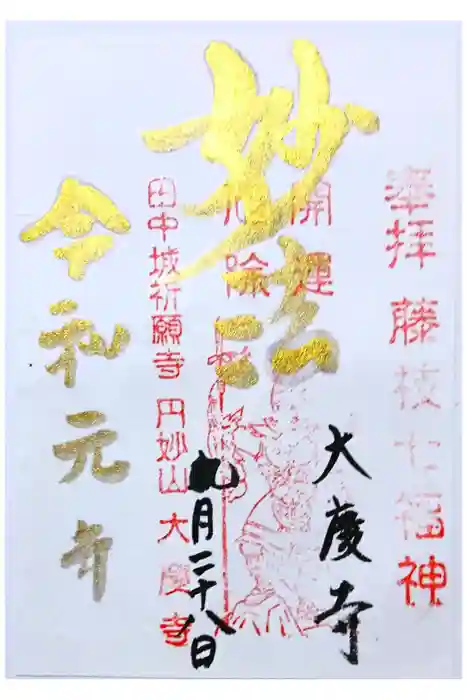 奉拝 藤枝七福神
大慶寺
開運
除
妙法
田中城祈願寺 円妙山 大慶寺
九月二十八日
令和元年